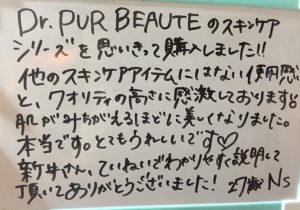 Dr. PUR BEAUTE のスキンケア
シリーズを思いきって購入しました!!
他のスキンケアアイテムにはない使用感
と、クオリティの高さに感激しております
肌がみちがえるほどに美しくなりました。
本当です。とてもうれしいです♡
新牛さん、ていねいでわかりやすく説明して
頂いてありがとうございました! 27歳 Ns